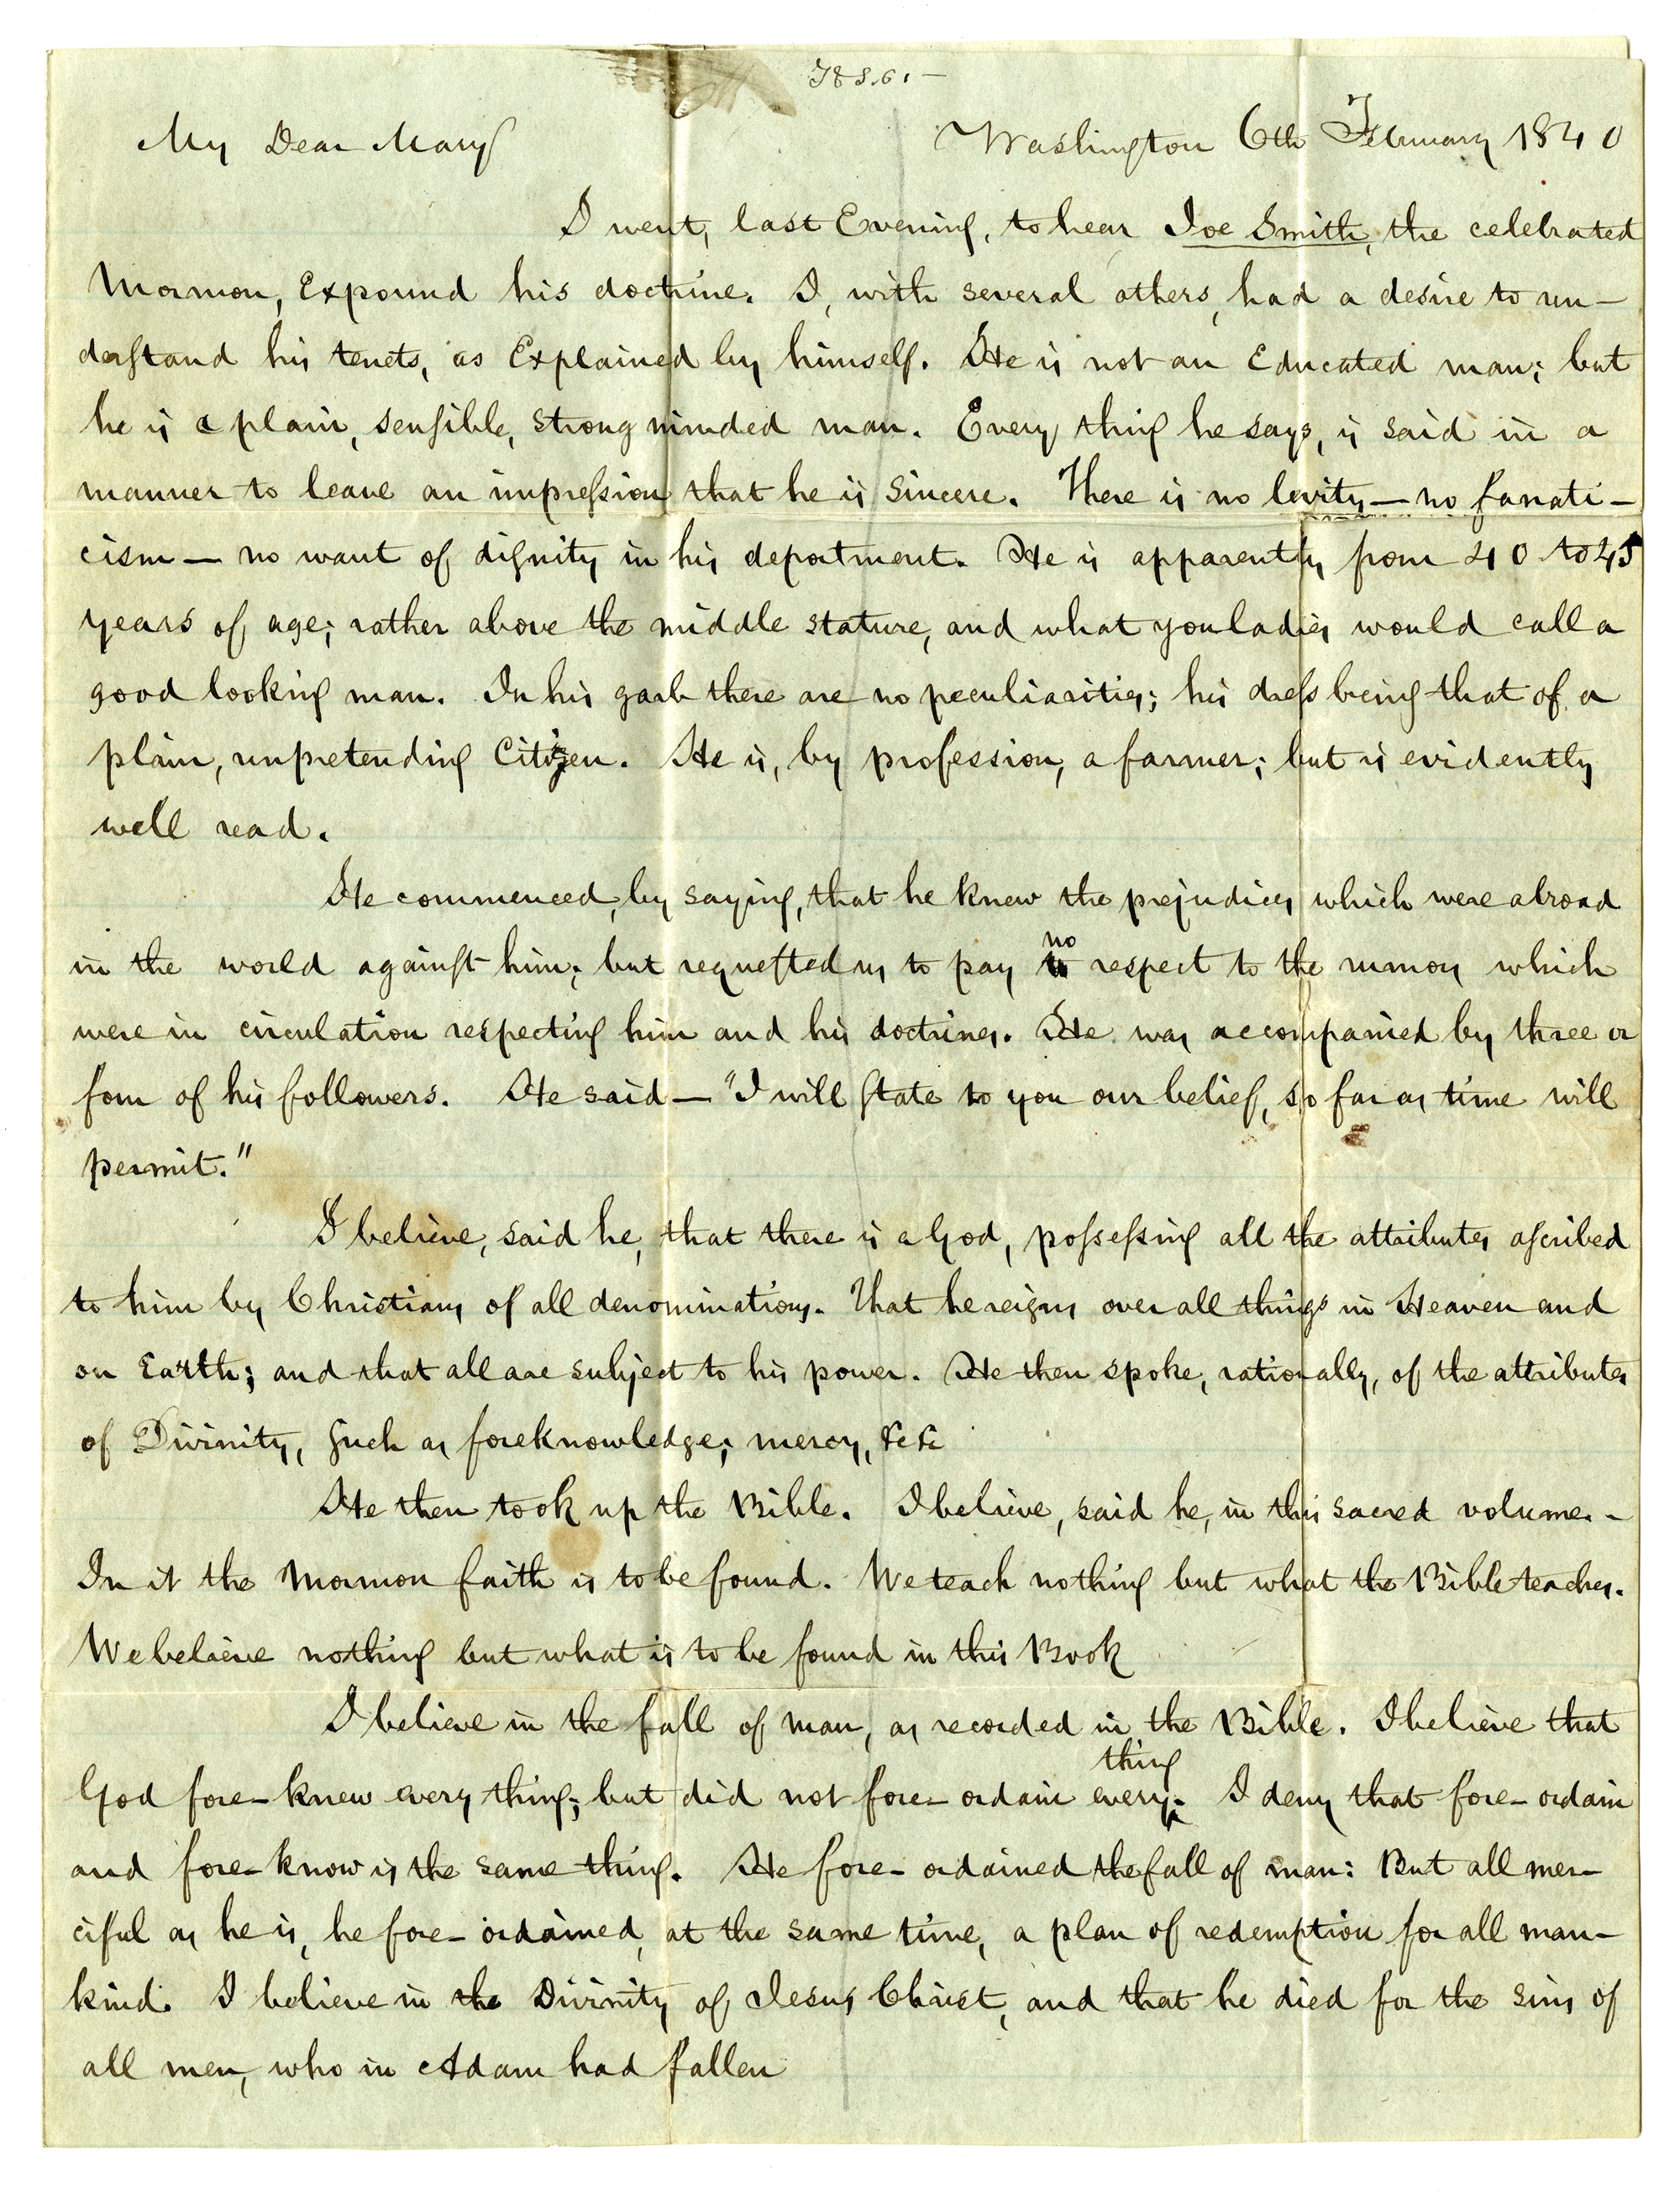 My Dear Mary
Washington 6th February 1840
I went, last Evening, to hear Joe Smith, the celebrated
Mormon, Expound his doctrine. I, with several others, had a desire to un-
derstand his tenets, as Explained by himself. He is not an Educated man; but
he is a plain, sensible, strong minded man. Every thing he says, is said in a
manner to leave an impression that he is sincere. There is no levity — no fanati-
cism — no want of dignity in his deportment. He is apparently from 40 to 45
years of age; rather above the middle stature, and what you ladies would call a
good looking man. In his garb there are no peculiarities; his dress being that of a
plain, unpretending Citizen. He is, by profession, a farmer; but is evidently
well read.
He commenced, by saying, that he knew the prejudices which were abroad
in the world against him; but requested us to pay no respect to the rumors which
were in circulation respecting him and his doctrines. He was accompanied by three or
four of his followers. He said — "I will state to you our belief, so far as time will
permit."
I believe, said he, that there is a God, possessing all the attributes ascribed
to him by Christians of all denominations. That he reigns over all things in Heaven and
on Earth; and that all are subject to his power. He then spoke, rationally, of the attributes
of Divinity, such as foreknowledge; mercy, &c &c
He then took up the Bible. I believe, said he, in this sacred volume. -
In it the Mormon faith is to be found. We teach nothing but what the Bible teaches.
We believe nothing but what is to be found in this Book
I believe in the fall of man, as recorded in the Bible. I believe that
God fore-knew every thing; but did not fore-ordain every thing. I deny that fore-ordain
and fore-know is the same thing. He fore-ordained the fall of man: But all mer-
ciful as he is, he fore-ordained, at the same time, a plan of redemption for all man-
kind. I believe in the Divinity of Jesus Christ, and that he died for the sins of
all men, who in Adam had fallen